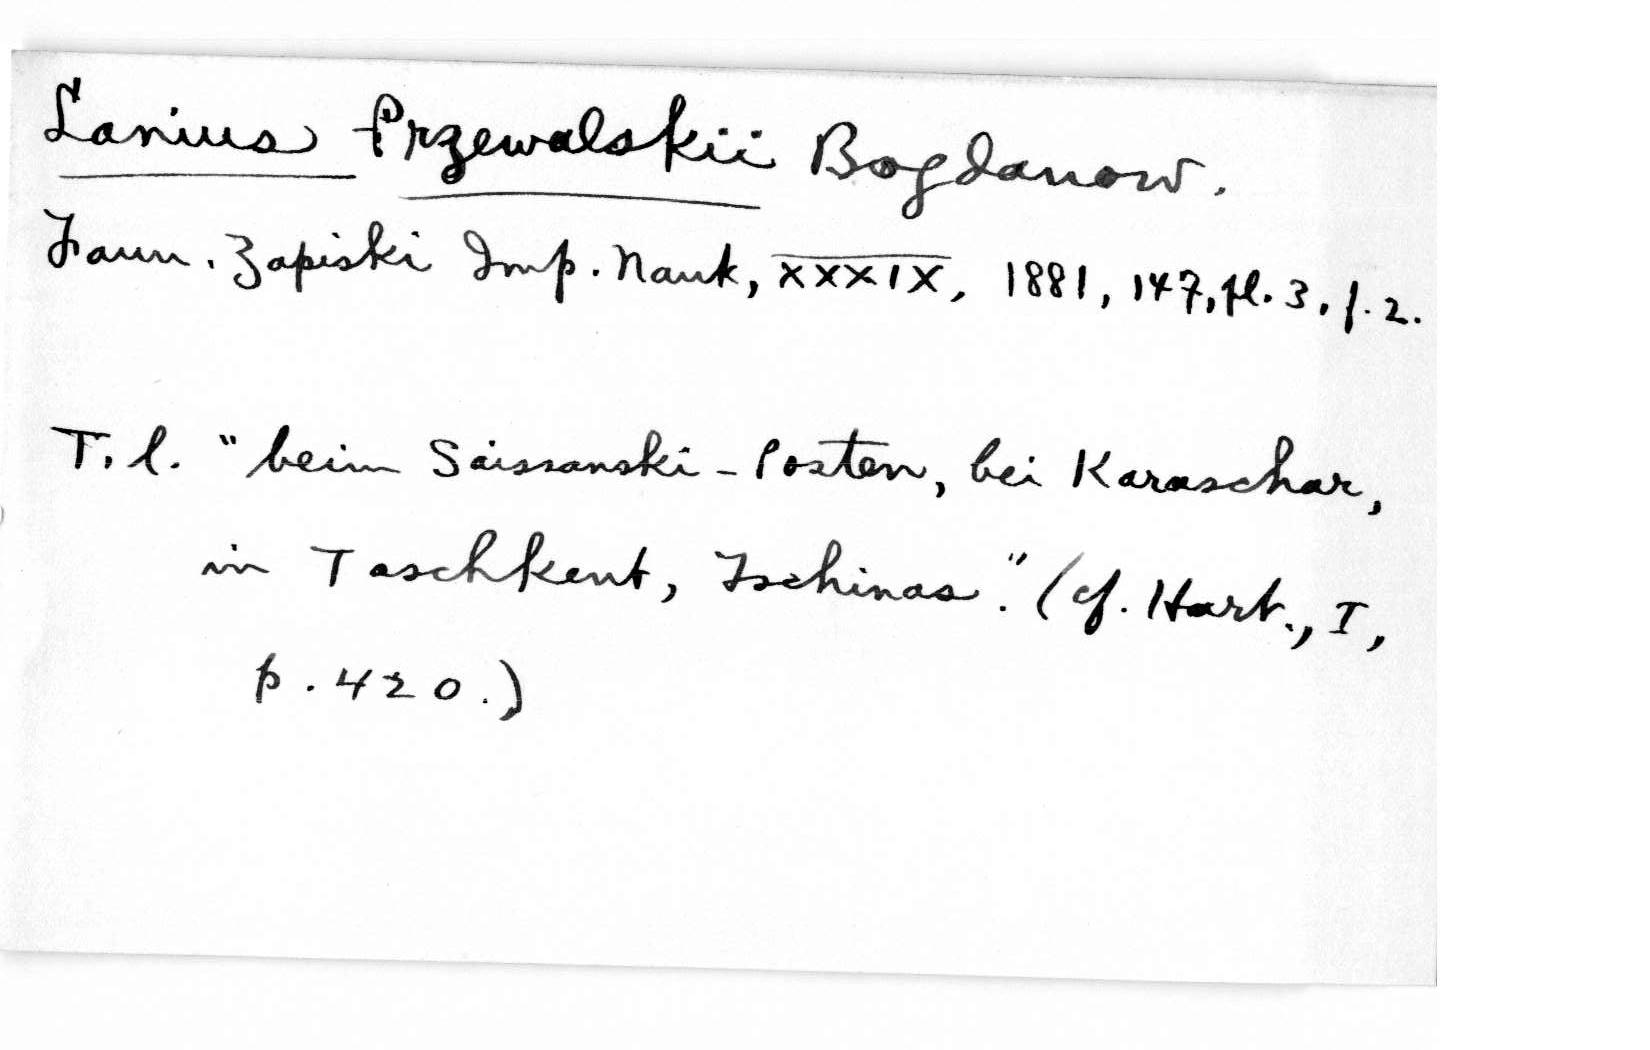 Lanius Przewalskii Bogdanow.
Faun. Zapiski Imp. Nauk, XXXIX, 1881, 147, pl. 3, f. 2.
T. l. "beim Saissanski-Posten, bei Karaschar,
in Taschkent, Tschinas." (cf. Hart., I,
p. 420.)